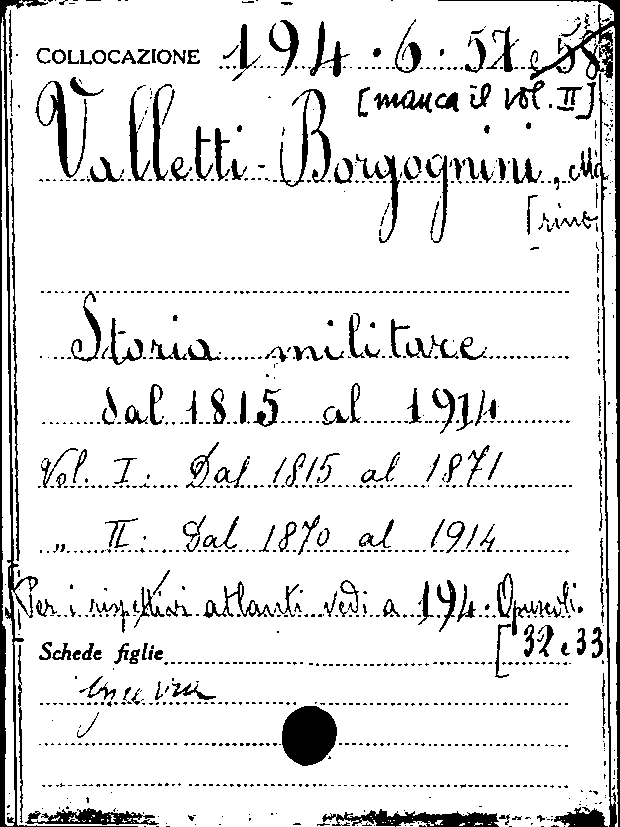 COLLOCAZIONE 194.6.57 e 58
[manca il vol. II]
Valletti-Borgognini, Ma
[rino
Storia militare
dal 1815 al 1914
Vol. I: Dal 1815 al 1871
„ II: Dal 1870 al 1914
Per i rispettivi atlanti vedi a 194. Opuscoli.
[32 e 33
Schede figlie